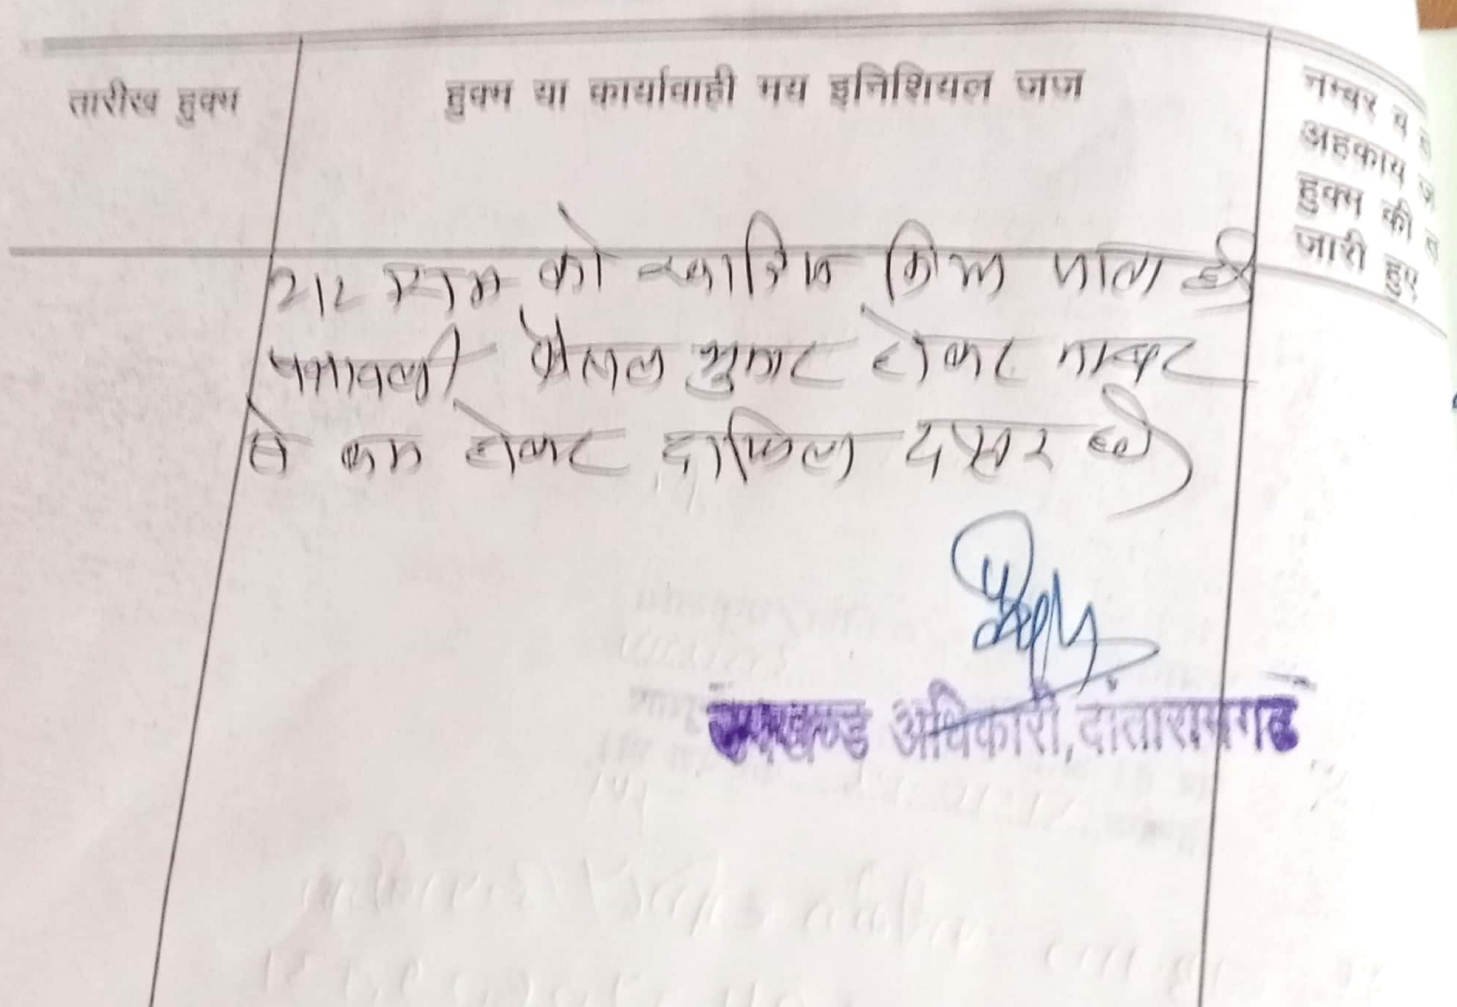 तारीख हुक्म
हुक्म या कार्यावाही मय इनिशियल जज
नम्बर व
अहकाम
हुक्म की
जारी हुए
को किया जाता है
पत्रावली फैसल शुमार होकर नम्बर
से कम होकर दाखिल दफ्तर हो
उपखण्ड अधिकारी, दांतारामगढ